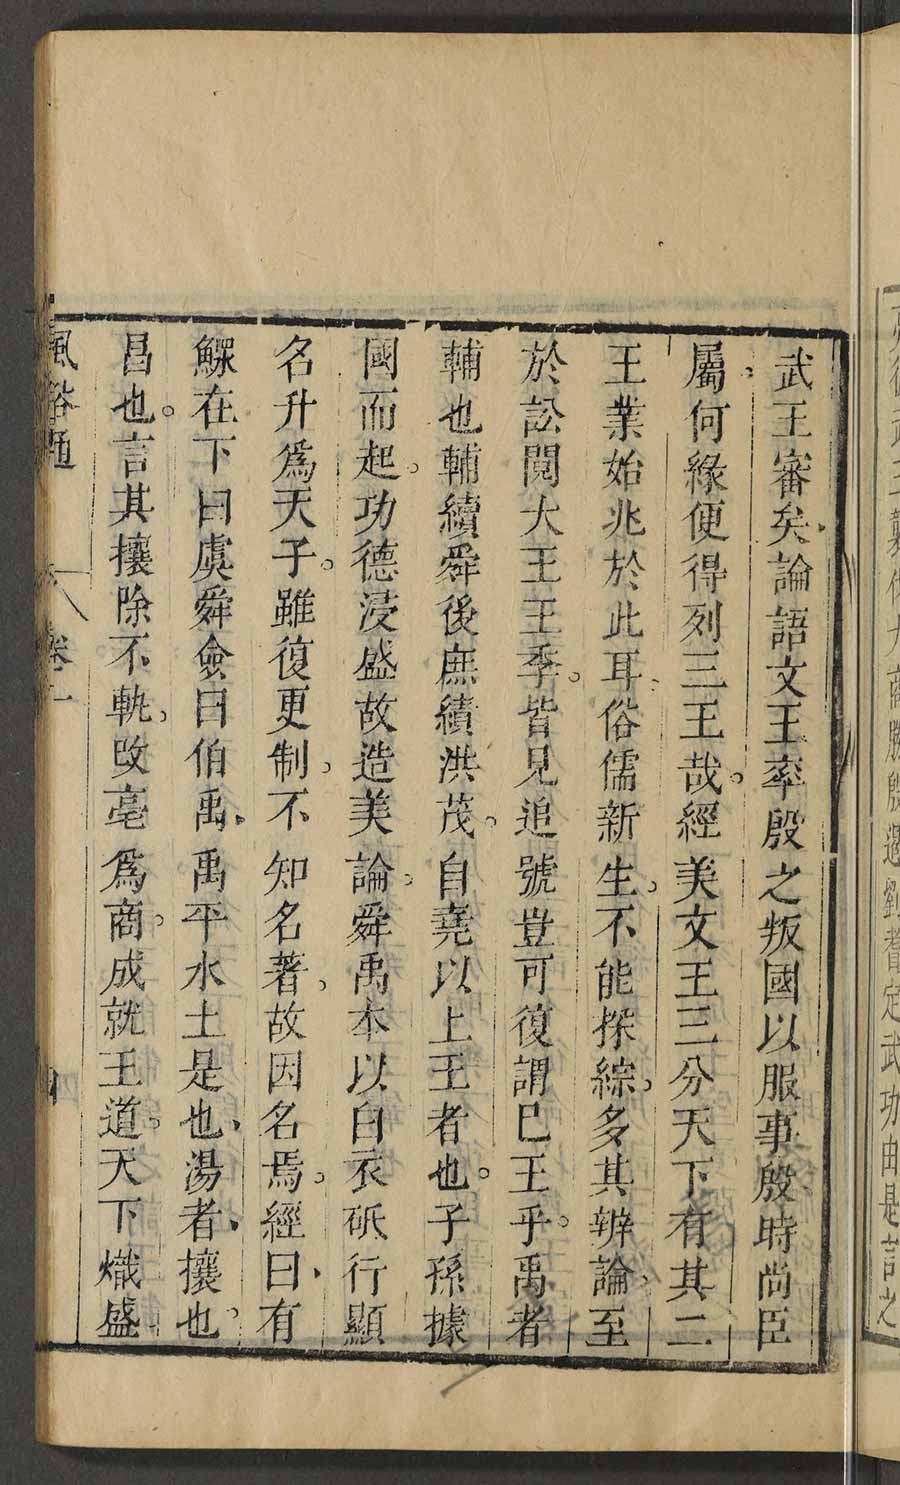 武王審矣論語文王率殷之叛國以服事殷時尚臣
屬何緣便得列三王哉。經美文王三分天下有其二
王業始兆於此耳俗儒新生。不能探綜。多其辨論、至
於訟閱大王王季。皆見追號豈可復謂巳王乎。禹者
輔也輔續舜後庶績洪茂。自堯以上王者也。子孫據
國而起。功德浸盛故造美論。舜禹本以白衣砥行顯
名升爲天子。雖復更制。不知名著、故因名焉。經曰、有
鰥在下曰虞舜僉曰伯禹、禹平水土是也、湯者、攘也。
昌也。言其攘除不軌。攺亳爲商。成就王道。天下熾盛
風俗通 卷一 四
武功由是言之